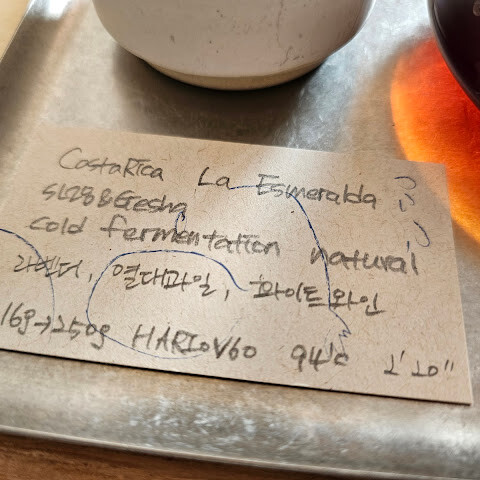 CostaRica La Esmeralda
SL28 & Gesha
cold fermentation natural
라벤더, 열대과일, 화이트 와인
16g→250g HARIO V60 94°c 2'20"